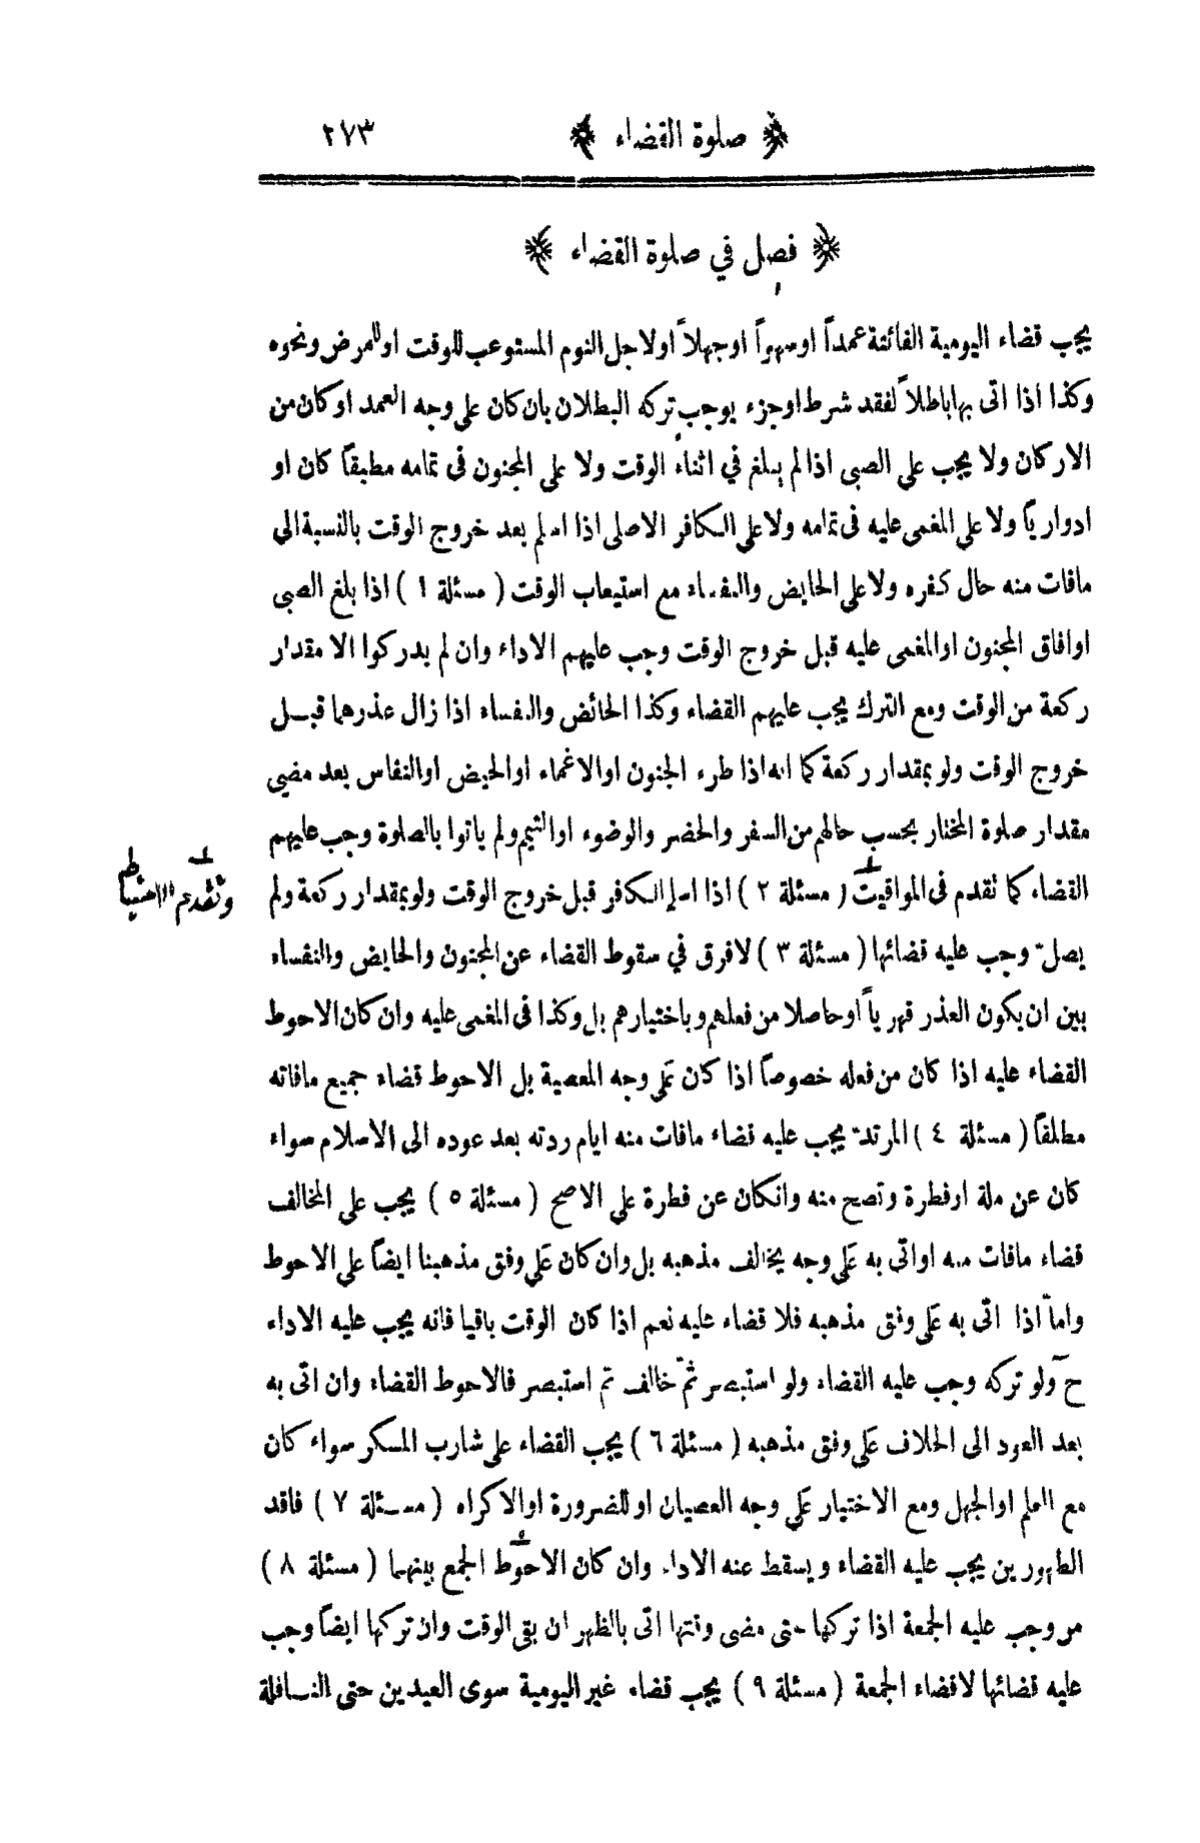 ﴿ صلوة القضاء ﴾ ٢٧٣
﴿ فصل في صلوة القضاء ﴾
يجب قضاء اليومية الفائتة عمداً اوسهواً اوجهلاً اولاجل النوم المستوعب للوقت اوللمرض ونحوه
وكذا اذا اتى بها باطلاً لفقد شرط اوجزء يوجب تركه البطلان بان كان على وجه العمد اوكان من
الاركان ولا يجب على الصبى اذا لم يبلغ في اثناء الوقت ولا على المجنون فى تمامه مطبقاً كان او
ادوارياً ولا على المغمى عليه فى تمامه ولا على الكافر الاصلى اذا اسلم بعد خروج الوقت بالنسبة الى
مافات منه حال كفره ولا على الحايض والنفساء مع استيعاب الوقت ( مسئلة ١ ) اذا بلغ الصبى
اوافاق المجنون اوالمغمى عليه قبل خروج الوقت وجب عليهم الاداء وان لم يدركوا الا مقدار
ركعة من الوقت ومع الترك يجب عليهم القضاء وكذا الحائض والنفساء اذا زال عذرهما قبل
خروج الوقت ولو بمقدار ركعة كما انه اذا طرء الجنون اوالاغماء اوالحيض اوالنفاس بعد مضي
مقدار صلوة المختار بحسب حالهم من السفر والحضر والوضوء اوالتيمم ولم ياتوا بالصلوة وجب عليهم
القضاء كما تقدم فى المواقيت ( مسئلة ٢ ) اذا اسلم الكافر قبل خروج الوقت ولو بمقدار ركعة ولم
وتقدم الاحتياط
يصلّ وجب عليه قضائها ( مسئلة ٣ ) لافرق في سقوط القضاء عن المجنون والحايض والنفساء
بين ان يكون العذر قهرياً اوحاصلا من فعلهم وباختيارهم بل وكذا فى المغمى عليه وان كان الاحوط
القضاء عليه اذا كان من فعله خصوصاً اذا كان على وجه المعصية بل الاحوط قضاء جميع مافاته
مطلقاً ( مسئلة ٤ ) المرتدّ يجب عليه قضاء مافات منه ايام ردته بعد عوده الى الاسلام سواء
كان عن ملة اوفطرة وتصح منه وانكان عن فطرة على الاصح ( مسئلة ٥ ) يجب على المخالف
قضاء مافات منه اواتى به على وجه يخالف مذهبه بل وان كان على وفق مذهبنا ايضاً على الاحوط
وامّا اذا اتى به على وفق مذهبه فلا قضاء عليه نعم اذا كان الوقت باقيا فانه يجب عليه الاداء
حٓ ولو تركه وجب عليه القضاء ولو استبصر ثمّ خالف ثم استبصر فالاحوط القضاء وان اتى به
بعد العود الى الخلاف على وفق مذهبه ( مسئلة ٦ ) يجب القضاء على شارب المسكر سواء كان
مع العلم اوالجهل ومع الاختيار على وجه العصيان اوللضرورة اوالاكراه ( مسئلة ٧ ) فاقد
الطهورين يجب عليه القضاء ويسقط عنه الاداء وان كان الاحوط الجمع بينهما ( مسئلة ٨ )
من وجب عليه الجمعة اذا تركها حتى مضى وقتها اتى بالظهر ان بقى الوقت وان تركها ايضاً وجب
عليه قضائها لاقضاء الجمعة ( مسئلة ٩ ) يجب قضاء غير اليومية سوى العيدين حتى النافلة